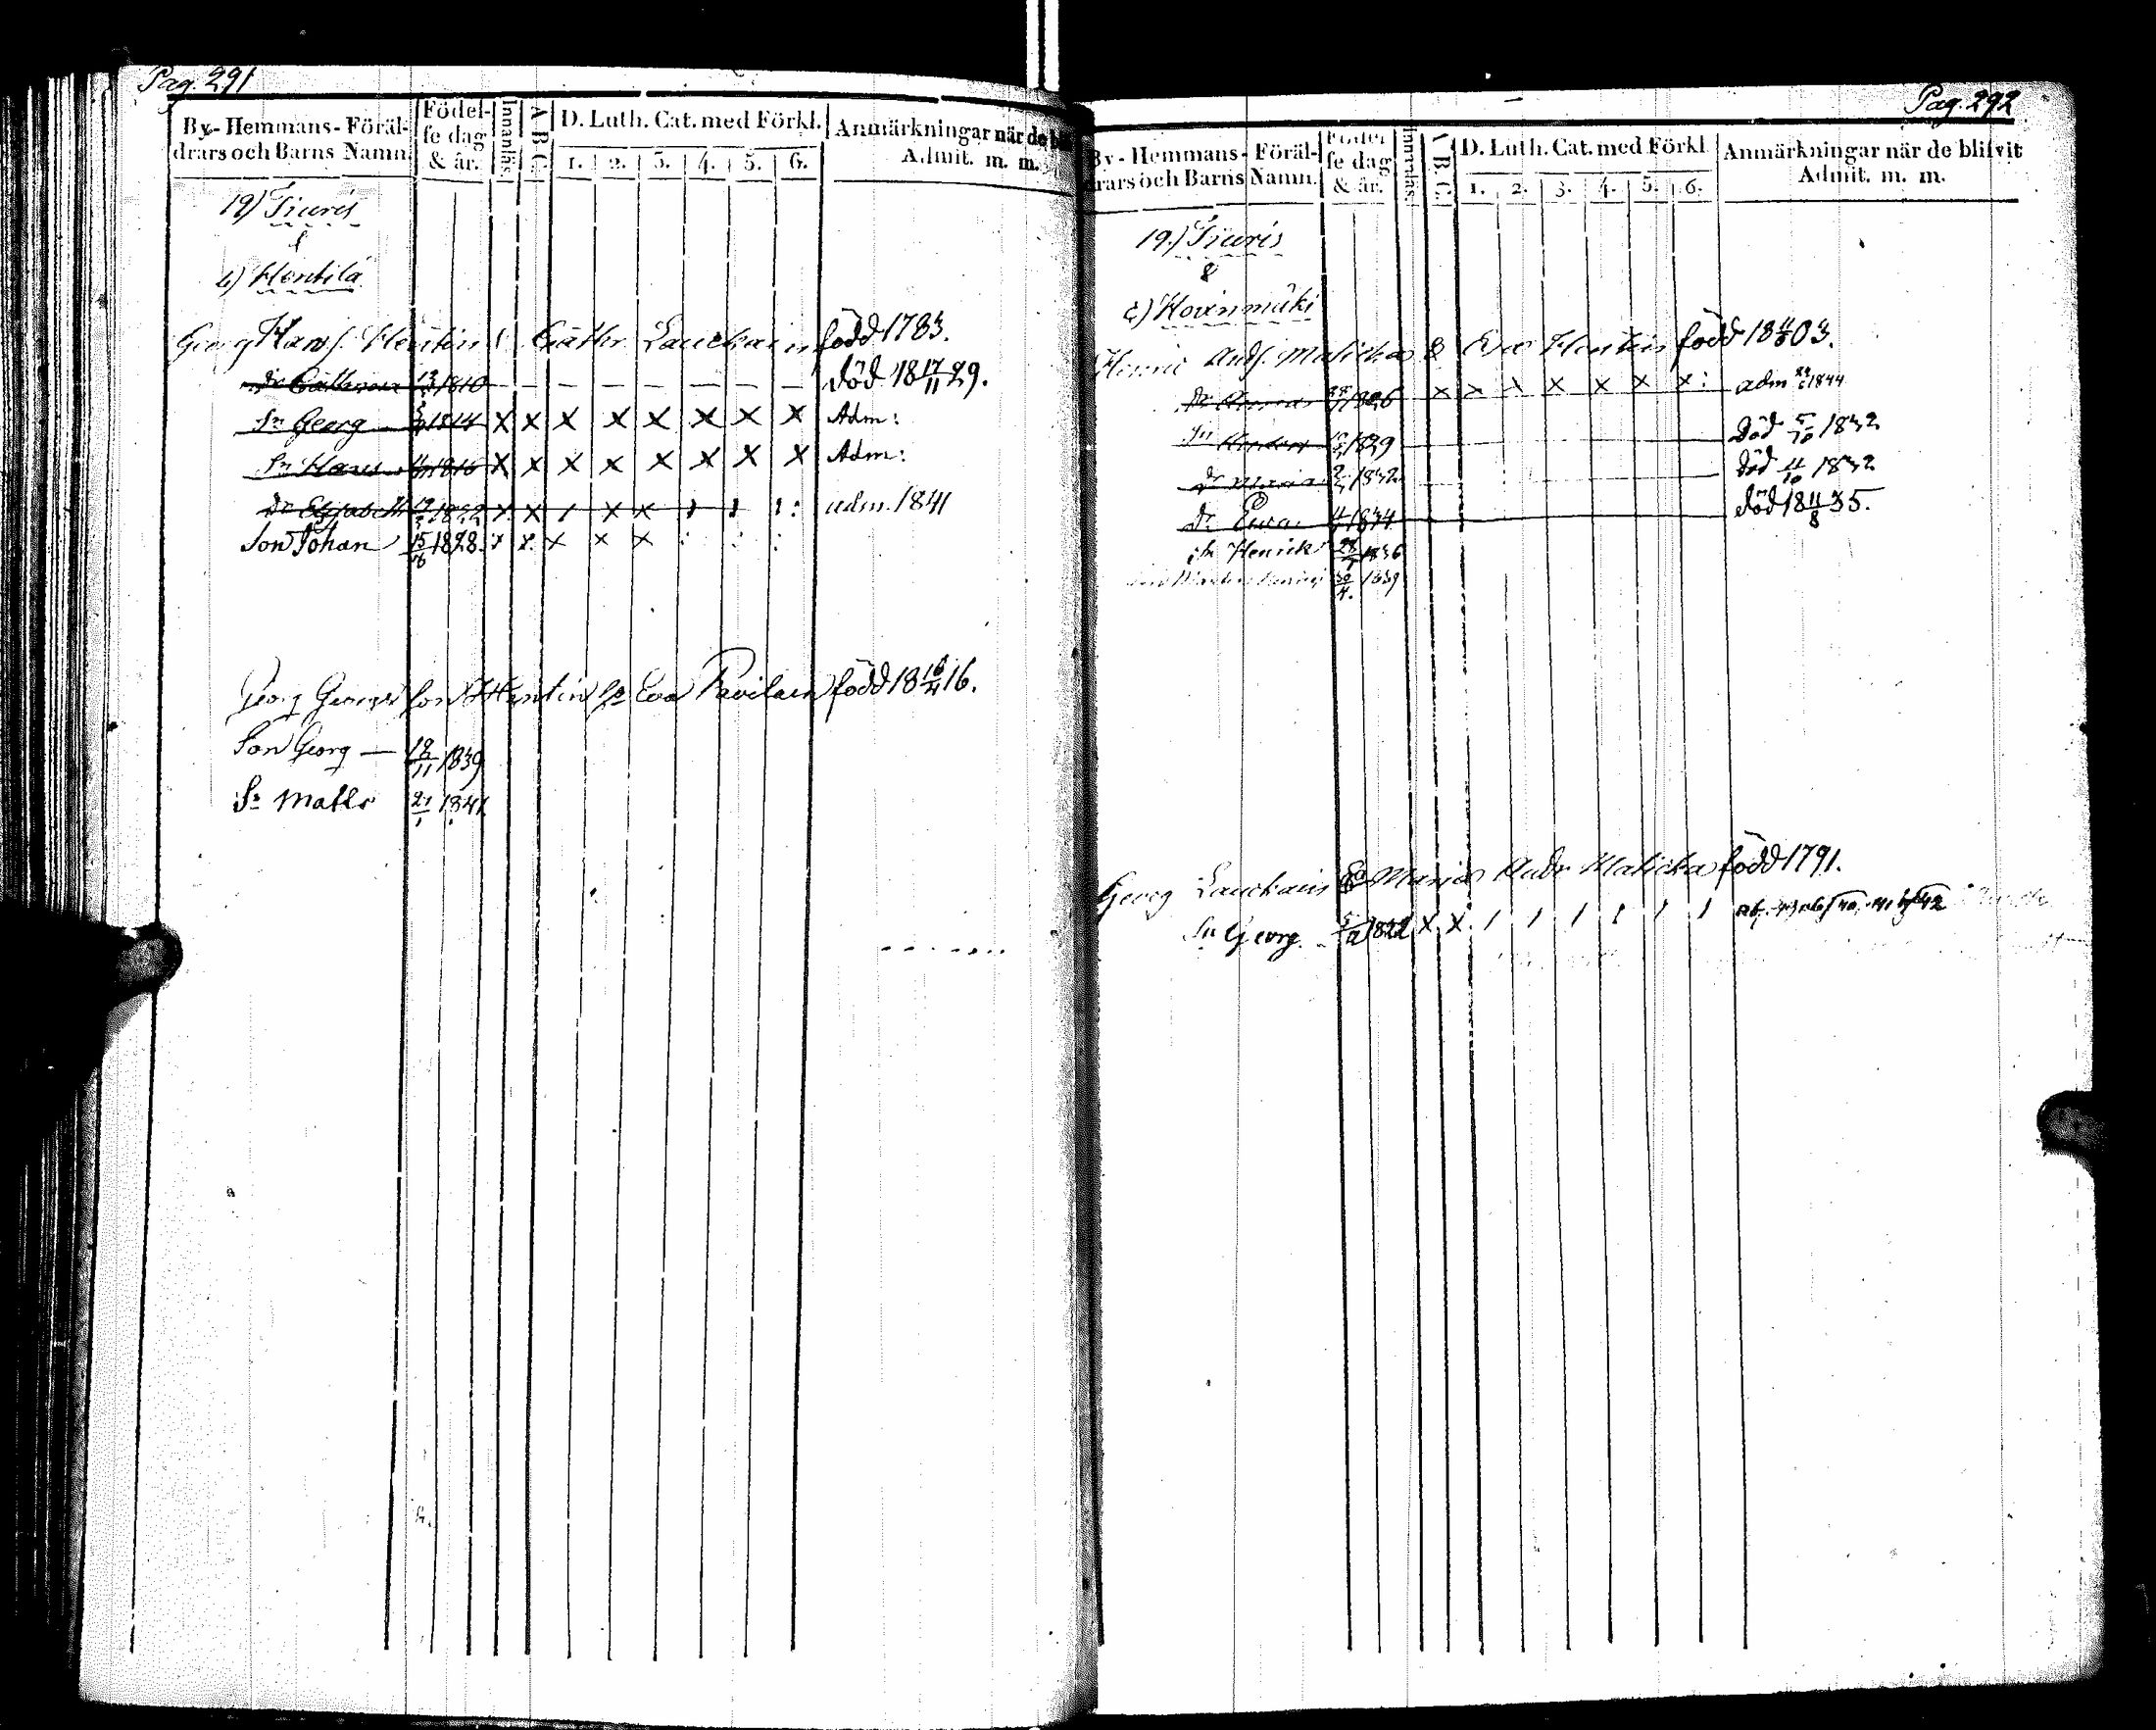 Pag. 291
By- Hemmans- Föräl-
drars och Barns Namn.
Födel-
se dag
& år.
Innanläs.
A B C.
D. Luth. Cat. med Förkl.
1. 2. 3. 4. 5. 6.
Anmärkningar när de bli
Admit. m. m.
19) Tiuris
b) Hentilä
Georg Hans s. Hentin & Cathr. Lauckain född 1783.
dr Catharina 1810 — — — — — — — död 18 17/11 29.
Sn Georg 1814 X X X X X X X X Adm:
Sn Hans 1816 X X X X X X X X Adm:
dr Elisabeth 1822 X X 1 X X 1 1 1: adm. 1841
Son Johan 15/6 1828. X X X X X : : :
Georg Georgs son Hentin & Eva Pavilain född 18 16/4 16.
Son Georg — 18/11 1839
Sn Matts 21/1 1841
Pag. 292
By- Hemmans- Föräl-
drars och Barns Namn.
Födel-
se dag
& år.
Innanläs.
A B C.
D. Luth. Cat. med Förkl
1. 2. 3. 4. 5. 6.
Anmärkningar när de blifvit
Admit. m. m.
19.) Tiuris
&
c) Hovinmäki
Henric Ands. Maticka & Eva Hentin född 18 03.
dr 1826 X X X X X X X: adm 1844
Sn 1829 Död 5/10 1832
dr Maria 1832 död 11/10 1832
dr Eva 1834 död 18 11/8 35.
Sn Henrick 28/7 1836
30/4. 1839
Georg Lauckain & Maria Andr Maticka född 1791.
Sn Georg 1822 X X 1 1 1 1 1 1